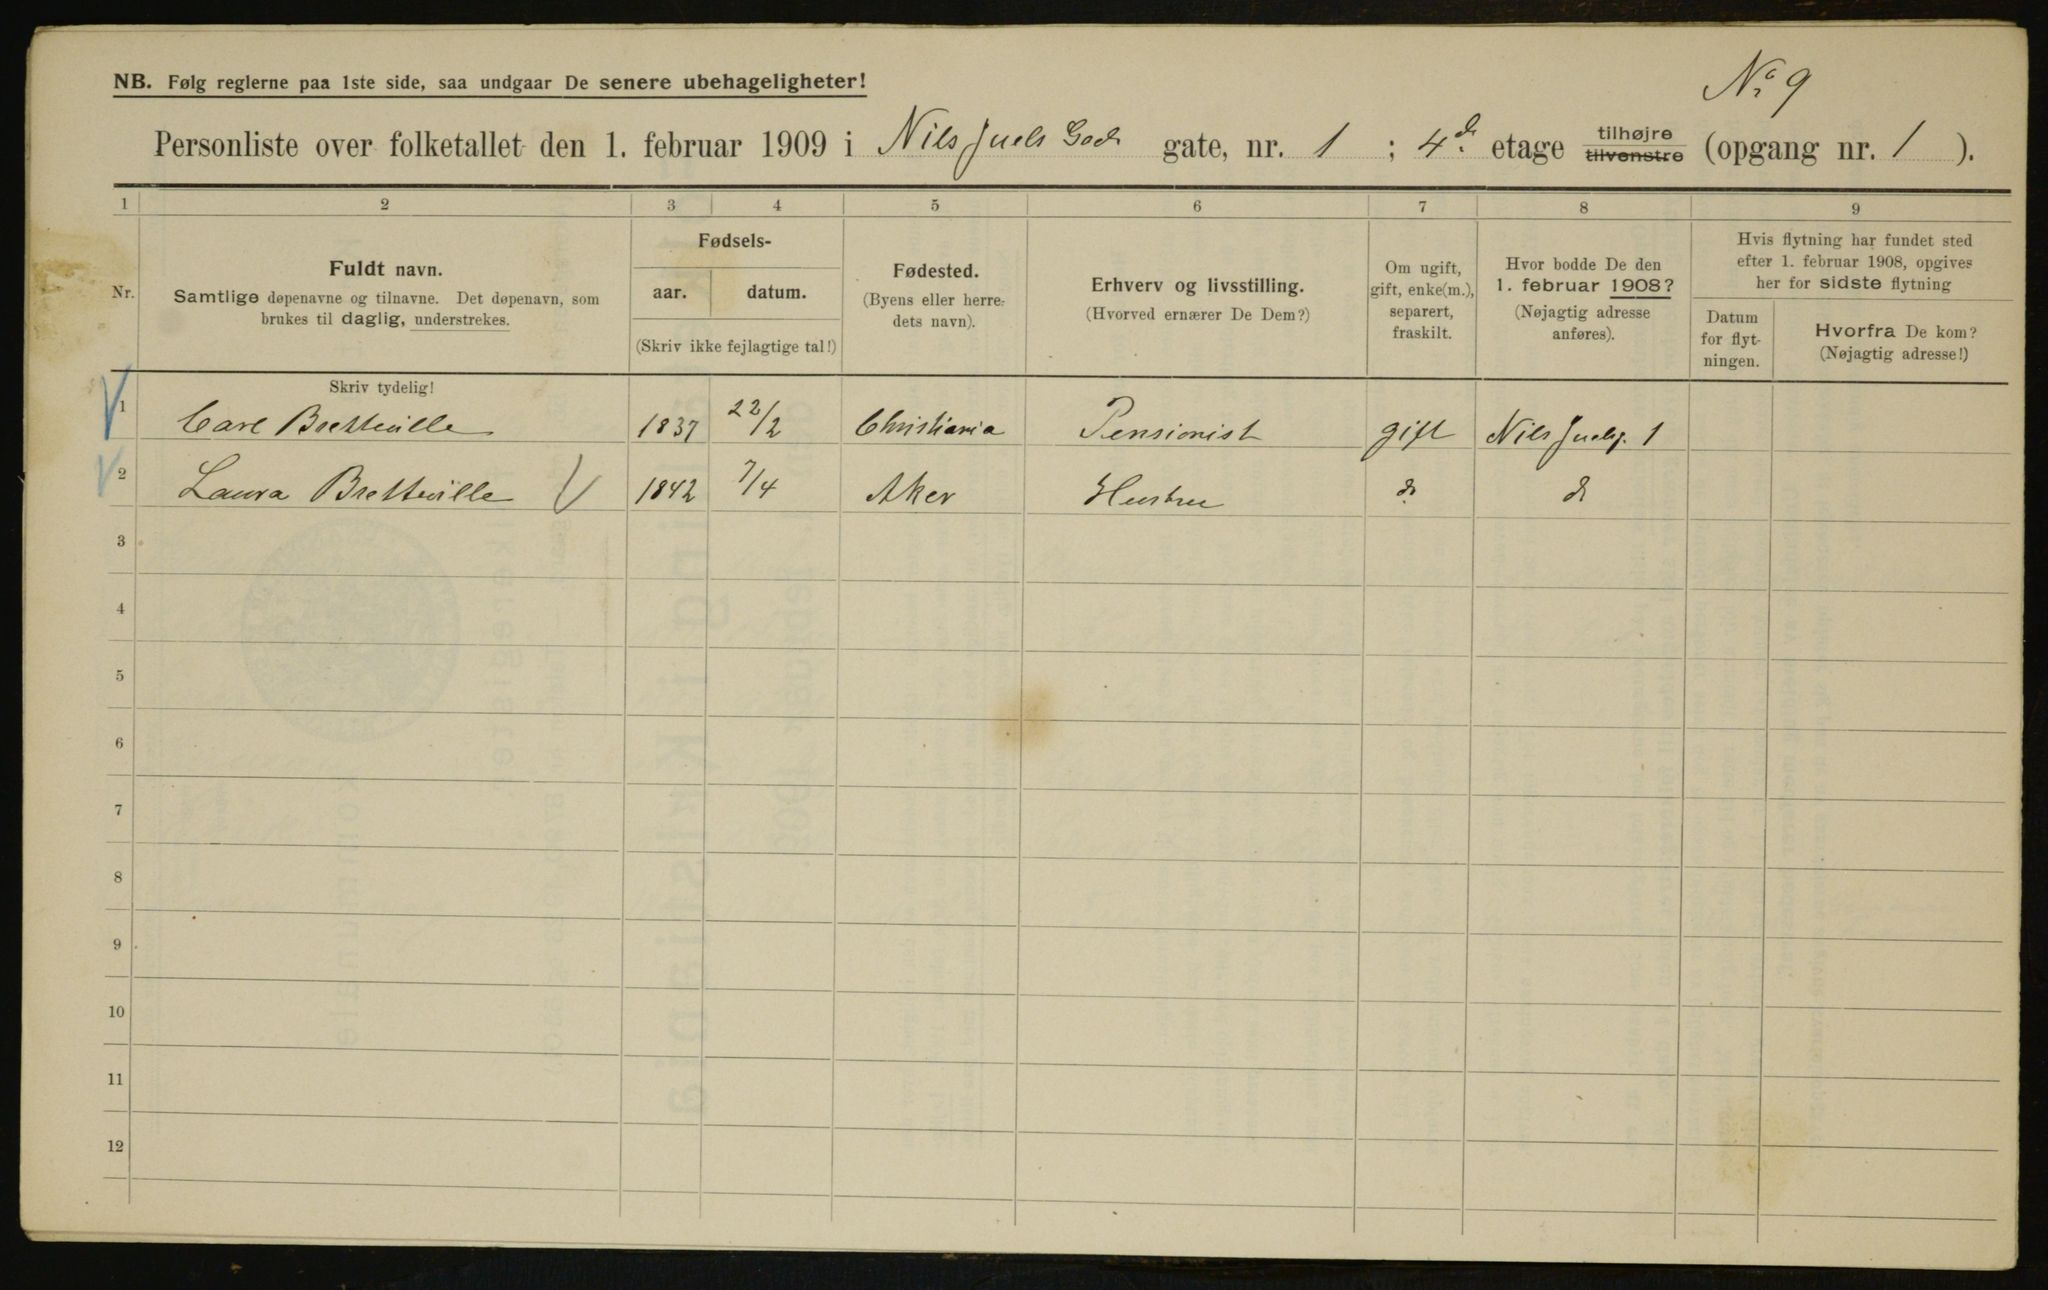 Nº 9
NB. Følg reglerne paa 1ste side, saa undgaar De senere ubehageligheter!
Personliste over folketallet den 1. februar 1909 i Nils Juels Gade gate, nr. 1 ; 4de etage tilhøjre tilvenstre (opgang nr. 1 ).
1 2 3 4 5 6 7 8 9
Nr.
Fuldt navn.
Samtlige døpenavne og tilnavne. Det døpenavn, som
brukes til daglig, understrekes.
Fødsels-
aar. datum.
(Skriv ikke fejlagtige tal!)
Fødested.
(Byens eller herre-
dets navn).
Erhverv og livsstilling.
(Hvorved ernærer De Dem?)
Om ugift,
gift, enke(m.),
separert,
fraskilt.
Hvor bodde De den
1. februar 1908?
(Nøjagtig adresse
anføres).
Hvis flytning har fundet sted
efter 1. februar 1908, opgives
her for sidste flytning
Datum
for flyt-
ningen.
Hvorfra De kom?
(Nøjagtig adresse!)
Skriv tydelig!
1 Carl Bretteville 1837 22/2 Christiania Pensionist gift Nils Juelsg. 1
2 Laura Bretteville 1842 7/4 Aker Hustru do do
3
4
5
6
7
8
9
10
11
12